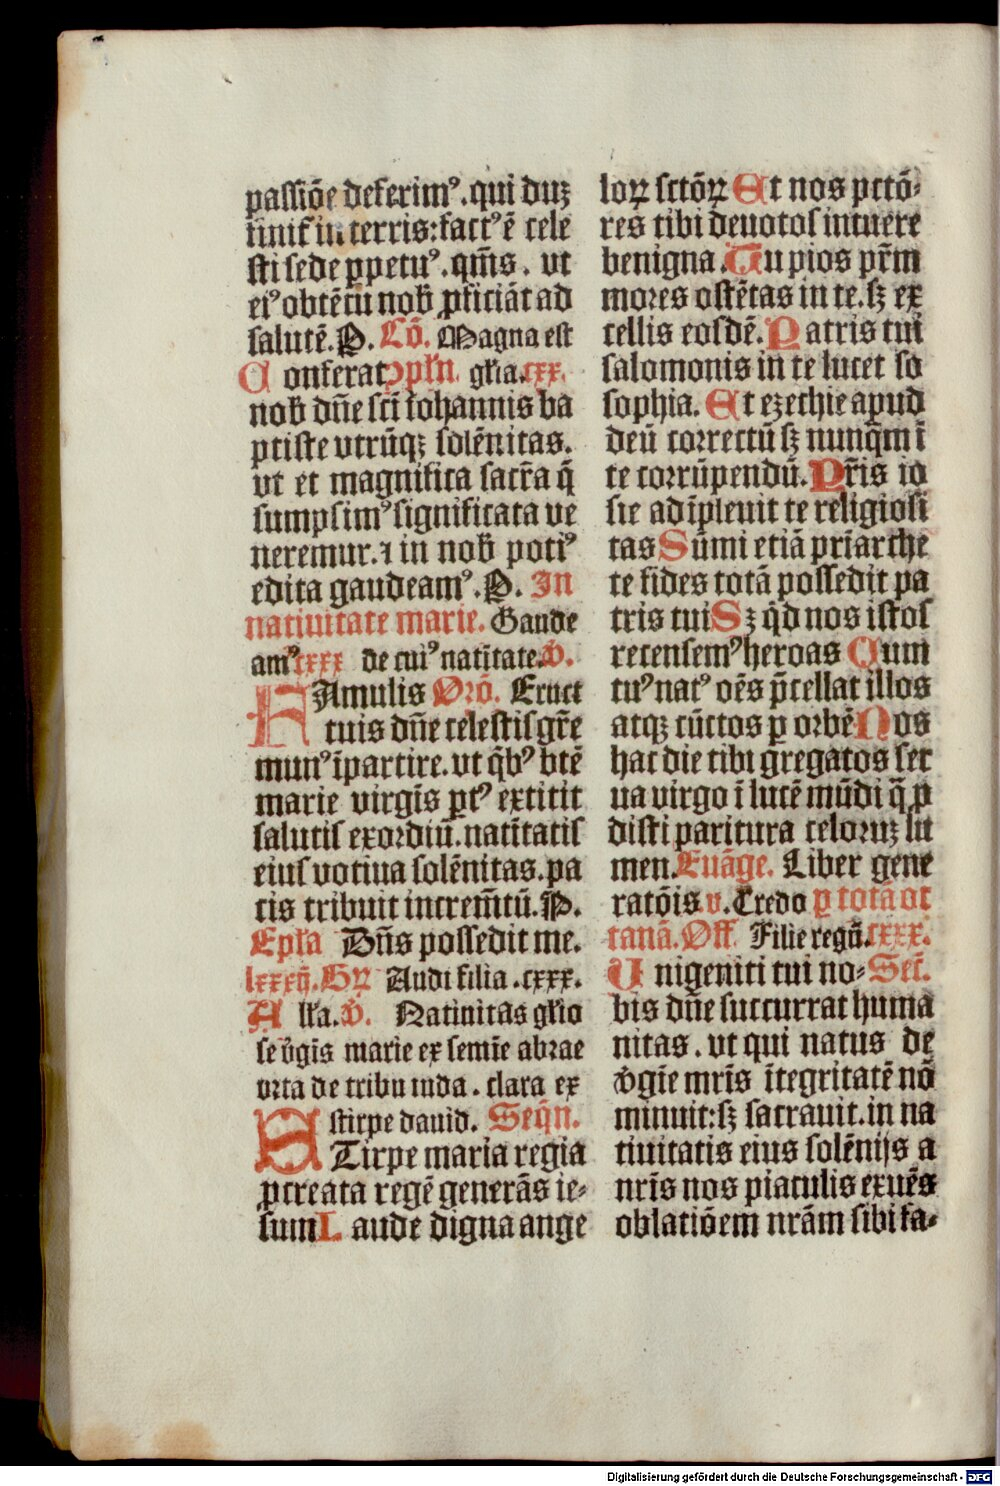 passiõe deferimꝰ.qui duꝫ
finit̉ in terris:factꝰ ẽ cele
sti sede ꝑpetuꝰ.qm̃s. vt
eiꝰ obtẽtu nob̃ ꝓficiãt ad
salutẽ.P. Cõ. Magna est
Conferat ↄplñ. gl̃ia.cxx.
nob̃ dñe sct̃i Iohannis ba
ptiste vtrũqꝫ solẽnitas.
vt et magnifica sacr̃a q̃
sumpsimꝰ significata ve
neremur.⁊ in nob̃ potiꝰ
edita gaudeamꝰ.P. In
natiuitate marie. Gaude
amꝰ cxxx de cuiꝰ natĩtate. v̾.
FAmulis Orõ. Eruct
tuis dñe celestis gr̃e
munꝰ ĩpartire.vt q̃bꝰ btẽ
marie virgĩs ꝑtꝰ extitit
salutis exordiũ.natĩtatis
eius votiua solẽnitas.pa
cis tribuit increm̃tũ.P.
Epl̃a Dñs possedit me.
lxxxij. Gꝝ Audi filia.cxxx.
All̃a.v̾. Natiuitas gl̃io
se v̾gĩs marie ex semĩe abrae
orta de tribu iuda. clara ex
stirpe dauid. Seq̃n.
STirpe maria regia
ꝓcreata regẽ generãs ie⸗
sum Laude digna ange
loꝝ sctõꝝ Et nos pctõ⸗
res tibi deuotos intuere
benigna. Tu pios pr̃m
mores ostẽtas in te.sꝫ ex
cellis eosdẽ. Patris tui
salomonis in te lucet so
sophia. Et ezechie apud
deũ correctũ sꝫ nunq̃m ĩ
te corrũpendũ. Pr̃is io
sie adĩpleuit te religiosi
tas Sũmi etiã pr̃iarche
te fides totã possedit pa
tris tui Sꝫ qͥd nos istos
recensemꝰ heroas Cum
tuꝰ natꝰ oẽs p̃cellat illos
atqꝫ cũctos ꝑ orbẽ Nos
hac die tibi gregatos ser
ua virgo ĩ lucẽ mũdi q̃ ꝓ
disti paritura celoruꝫ lu
men. Euãge. Liber gene
ratõis.v. Credo ꝑ totã oc
tauã. Off̃. Filie regũ.cxxx.
Vnigeniti tui no⸗ Secr̃.
bis dñe succurrat huma
nitas.vt qui natus de
v̾gĩe mr̃is ĩtegritatẽ nõ
minuit:sꝫ sacrauit.in na
tiuitatis eius solẽnijs a
nr̃is nos piaculis exuẽs
oblatiõem nr̃am sibi fa⸗
Digitalisierung gefördert durch die Deutsche Forschungsgemeinschaft - DFG